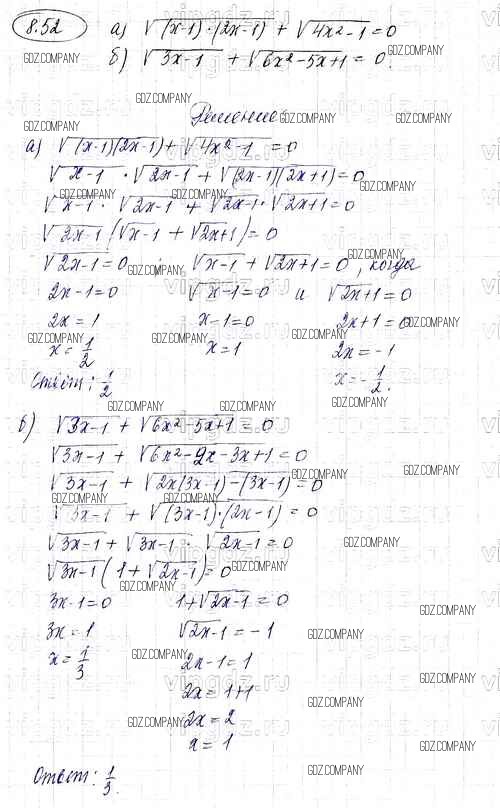 8.52 а) √(x-1)·(2x-1) + √4x²-1 = 0
б) √3x-1 + √6x²-5x+1 = 0.
Решение.
а) √(x-1)(2x-1) + √4x²-1 = 0
√x-1 · √2x-1 + √(2x-1)(2x+1) = 0
√x-1 · √2x-1 + √2x-1 · √2x+1 = 0
√2x-1 (√x-1 + √2x+1) = 0
√2x-1 = 0 ; √x-1 + √2x+1 = 0, когда
2x-1=0 √x-1=0 и √2x+1=0
2x=1 x-1=0 2x+1=0
x=1/2 x=1 2x=-1
Ответ: 1/2 x=-1/2.
б) √3x-1 + √6x²-5x+1 = 0
√3x-1 + √6x²-2x-3x+1 = 0
√3x-1 + √2x(3x-1)-(3x-1) = 0
√3x-1 + √(3x-1)·(2x-1) = 0
√3x-1 + √3x-1 · √2x-1 = 0
√3x-1 (1+√2x-1) = 0
3x-1=0 1+√2x-1 = 0
3x=1 √2x-1 = -1
x=1/3 2x-1=1
2x=1+1
2x=2
x=1
Ответ: 1/3.
GDZ.COMPANY
vingdz.ru